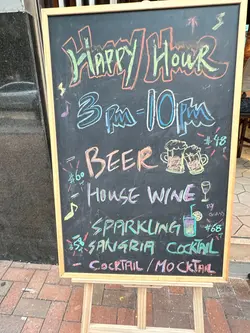 HAPPY HOUR
3pm-10pm
$48
BEER
HOUSE WINE
SPARKLING
$68
SANGRIA COCKTAIL
- COCKTAIL / MOCKTAIL